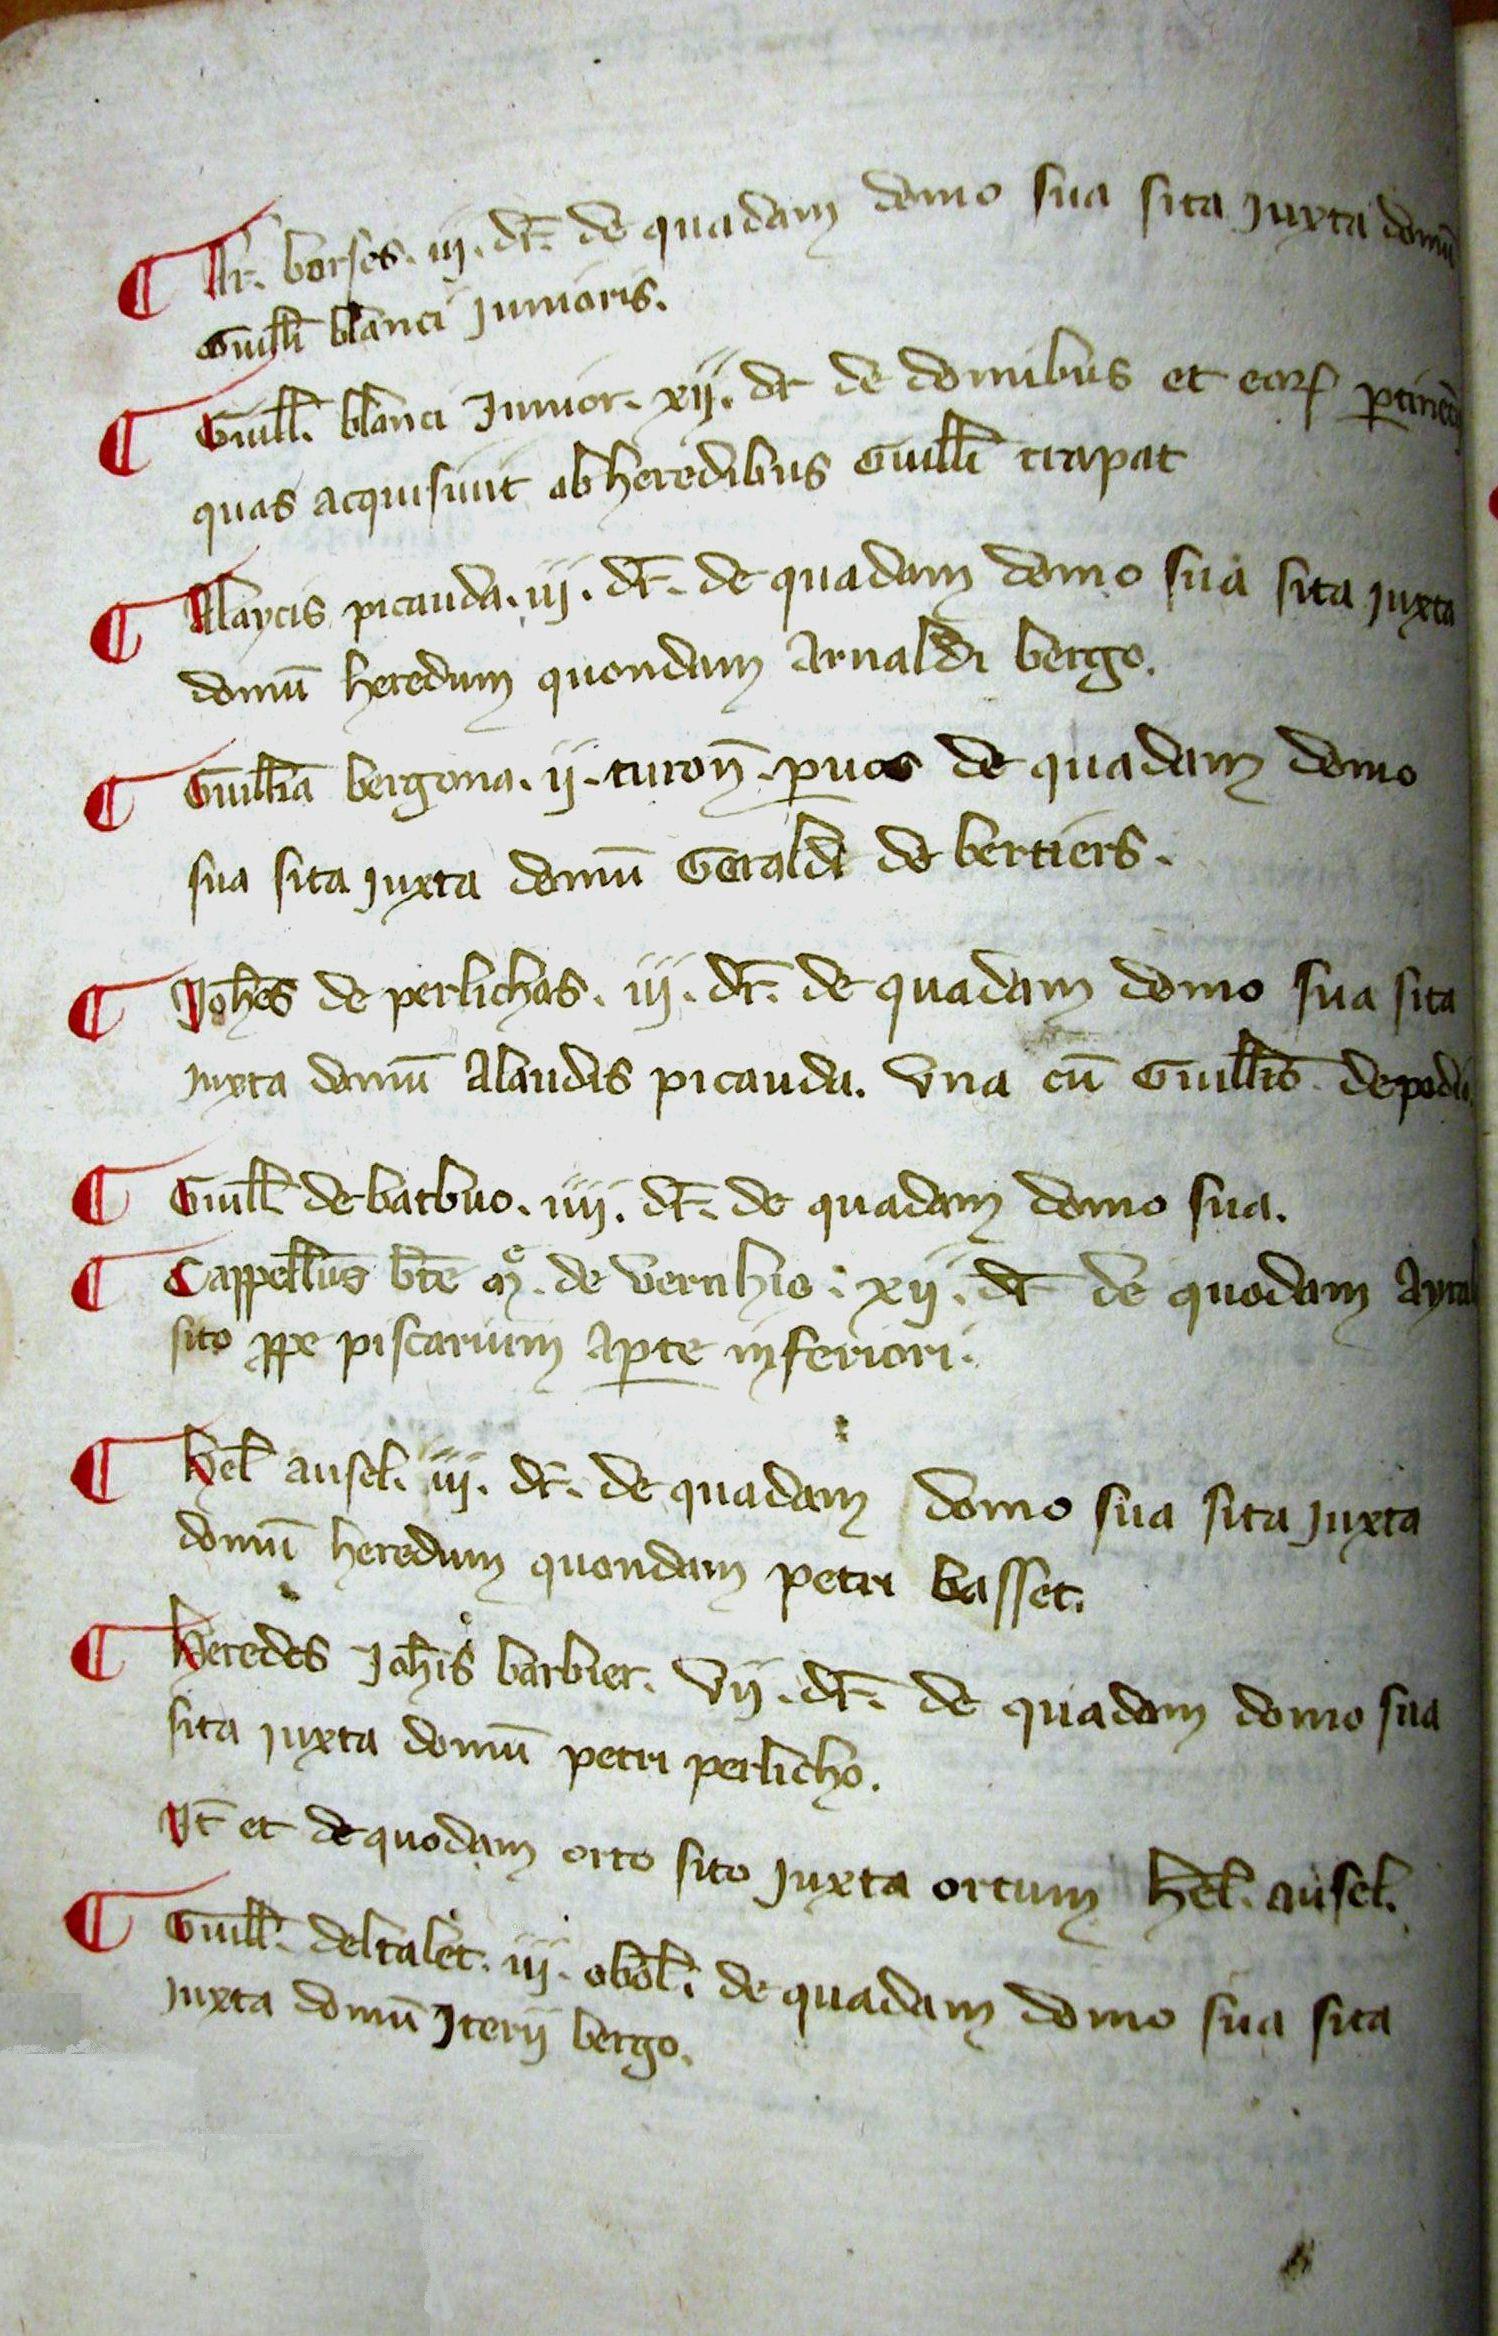 ¶ Ar. borses. iij. dr̄. de quadam domo sua sita juxta domū
Guill̄i blanci junioris.
¶ Guill̄. blanci Junior. xij. dr̄ de domibus et eorꝝ ꝑtinen̄
quas acquisiuit ab heredibus Guill̄i trapat
¶ Alaycis picauda. iij. dr̄. de quadam domo sua sita juxta
domū heredum quondam Arnaldi bergo.
¶ Guill̄ma bergona. ij. turon̄. ꝑuos de quadam domo
sua sita juxta domū Geraldi de bertiers.
¶ Joh̄es de perlichas. iij. dr̄. de quadam domo sua sita
juxta domū Alaudis picauda. vna cū Guill̄mo de podi
¶ Guill̄ de barbuo. iiij. dr̄. de quadam domo sua.
¶ Cappell̄us bt̄e mͤ. de vernhio. xij. dr̄ de quodam Ayral
sito ꝓpe piscarium aꝑte inferiori.
¶ hel̄ ausel. iij. dr̄. de quadam domo sua sita juxta
domū heredum quondam petri basset.
¶ heredes Joh̄is barbier. vij. dr̄. de quadam domo sua
sita juxta domū petri perlicho.
Jt̄ et de quodam orto sito juxta ortum hel̄. ausel.
¶ Guill̄. deltalet. iij. obol̄. de quadam domo sua sita
juxta domū Jterij bergo.